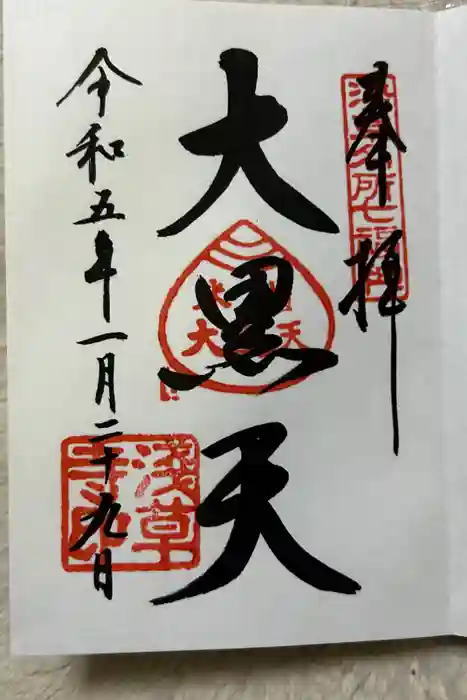 奉拝
浅草名所七福神
大黒天
令和五年一月二十九日
浅草寺印